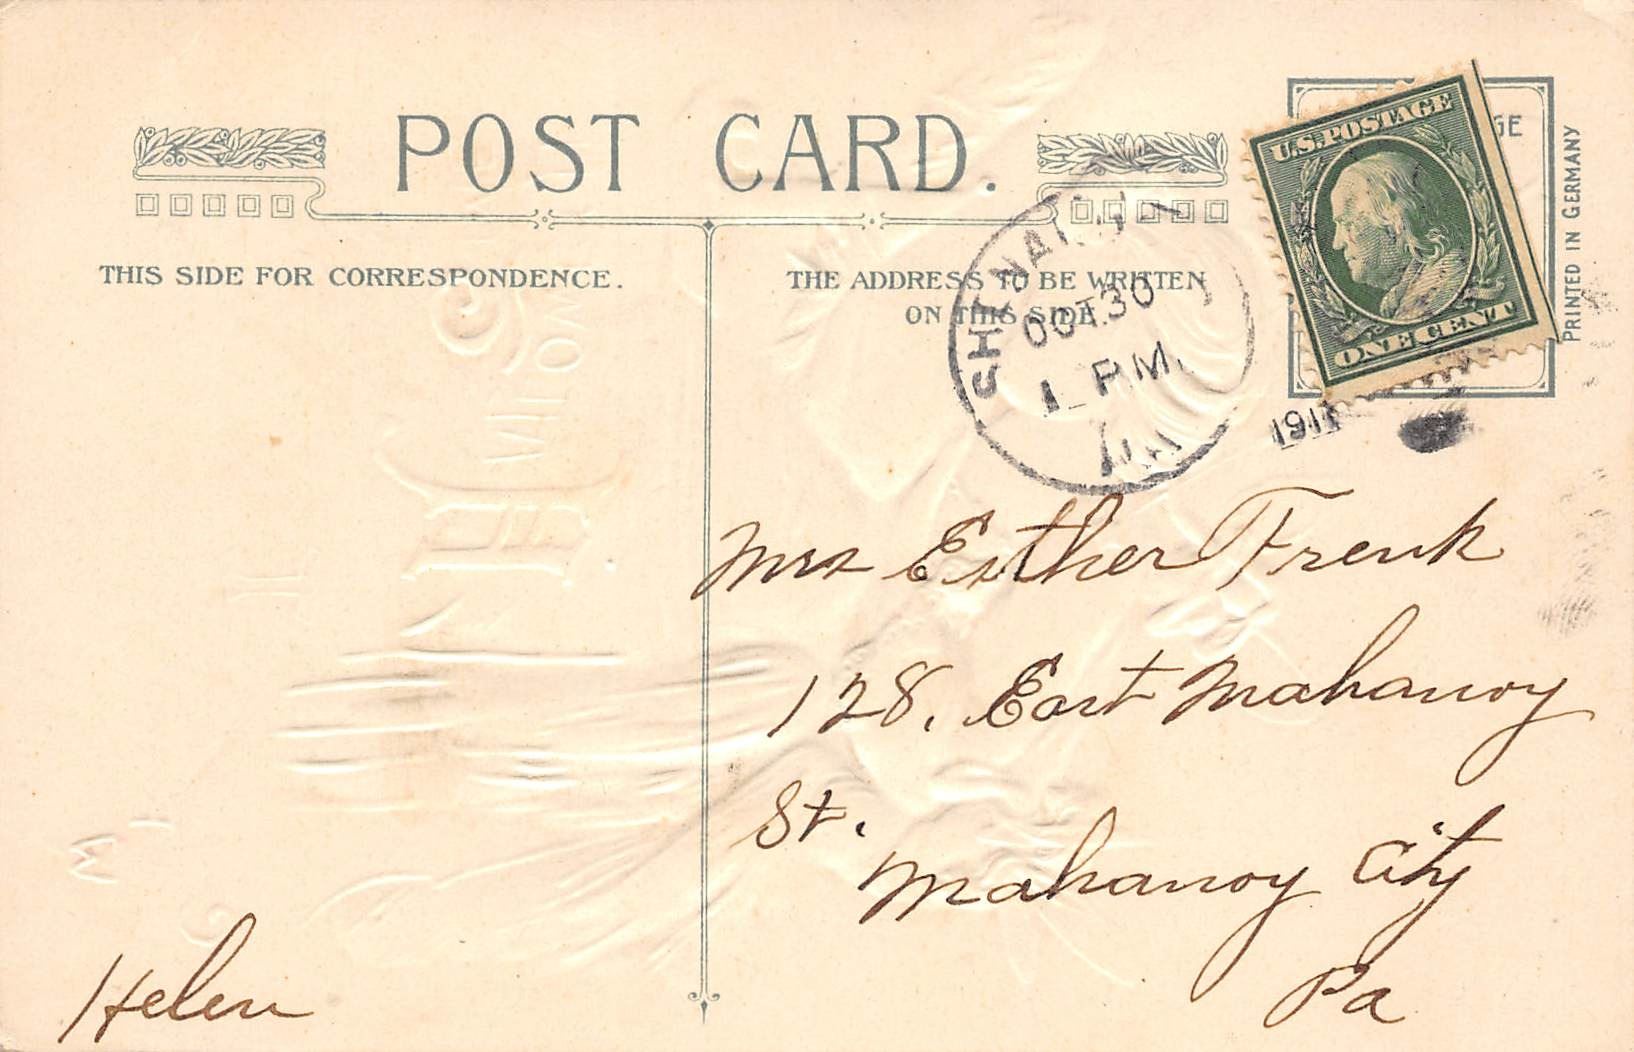 POST CARD.
THIS SIDE FOR CORRESPONDENCE.
THE ADDRESS TO BE WRITTEN
ON THIS SIDE
U.S. POSTAGE
ONE CENT
PRINTED IN GERMANY
OCT 30
1 PM.
PA
Mrs Esther Frenk
128. East Mahanoy
St.
Mahanoy City
Pa
Helen